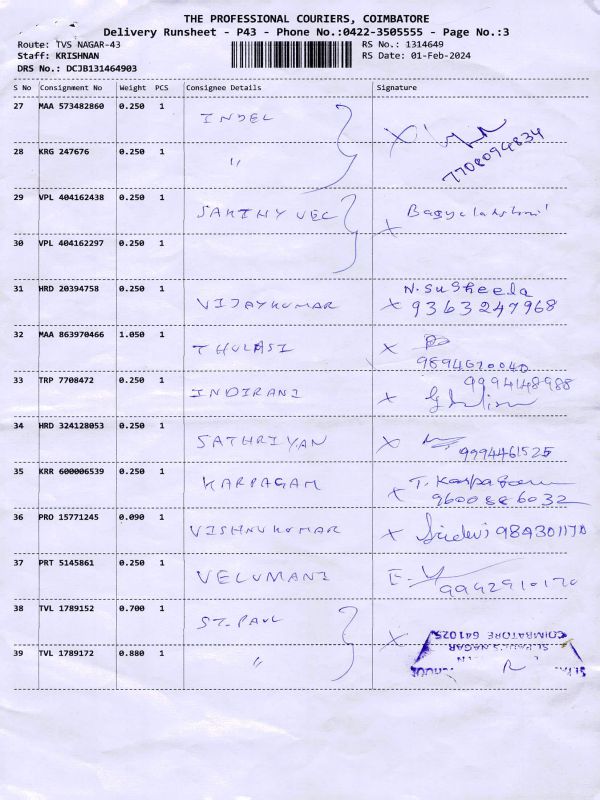 THE PROFESSIONAL COURIERS, COIMBATORE
Delivery Runsheet - P43 - Phone No.:0422-3505555 - Page No.:3
Route: TVS NAGAR-43 RS No.: 1314649
Staff: KRISHNAN RS Date: 01-Feb-2024
DRS No.: DCJB131464903
S No Consignment No Weight PCS Consignee Details Signature
27 MAA 573482860 0.250 1 INDEL
7708094834
28 KRG 247676 0.250 1 "
29 VPL 404162438 0.250 1 SAKTHY VEL X Bagyalakshmi
30 VPL 404162297 0.250 1
31 HRD 20394758 0.250 1 VIJAYKUMAR X N. Susheela
9363247968
32 MAA 863970466 1.050 1 THULASI X
9894670040
33 TRP 7708472 0.250 1 INDIRANI X 9994148988
34 HRD 324128053 0.250 1 SATHRIYAN X 9994461525
35 KRR 600006539 0.250 1 KARPAGAM X T. Karpagam
9600586032
36 PRO 15771245 0.090 1 VISHNUKUMAR X Sridevi 984301170
37 PRT 5145861 0.250 1 VELUMANI 9942910170
38 TVL 1789152 0.700 1 ST. PAUL X
COIMBATORE 641025
39 TVL 1789172 0.880 1 "